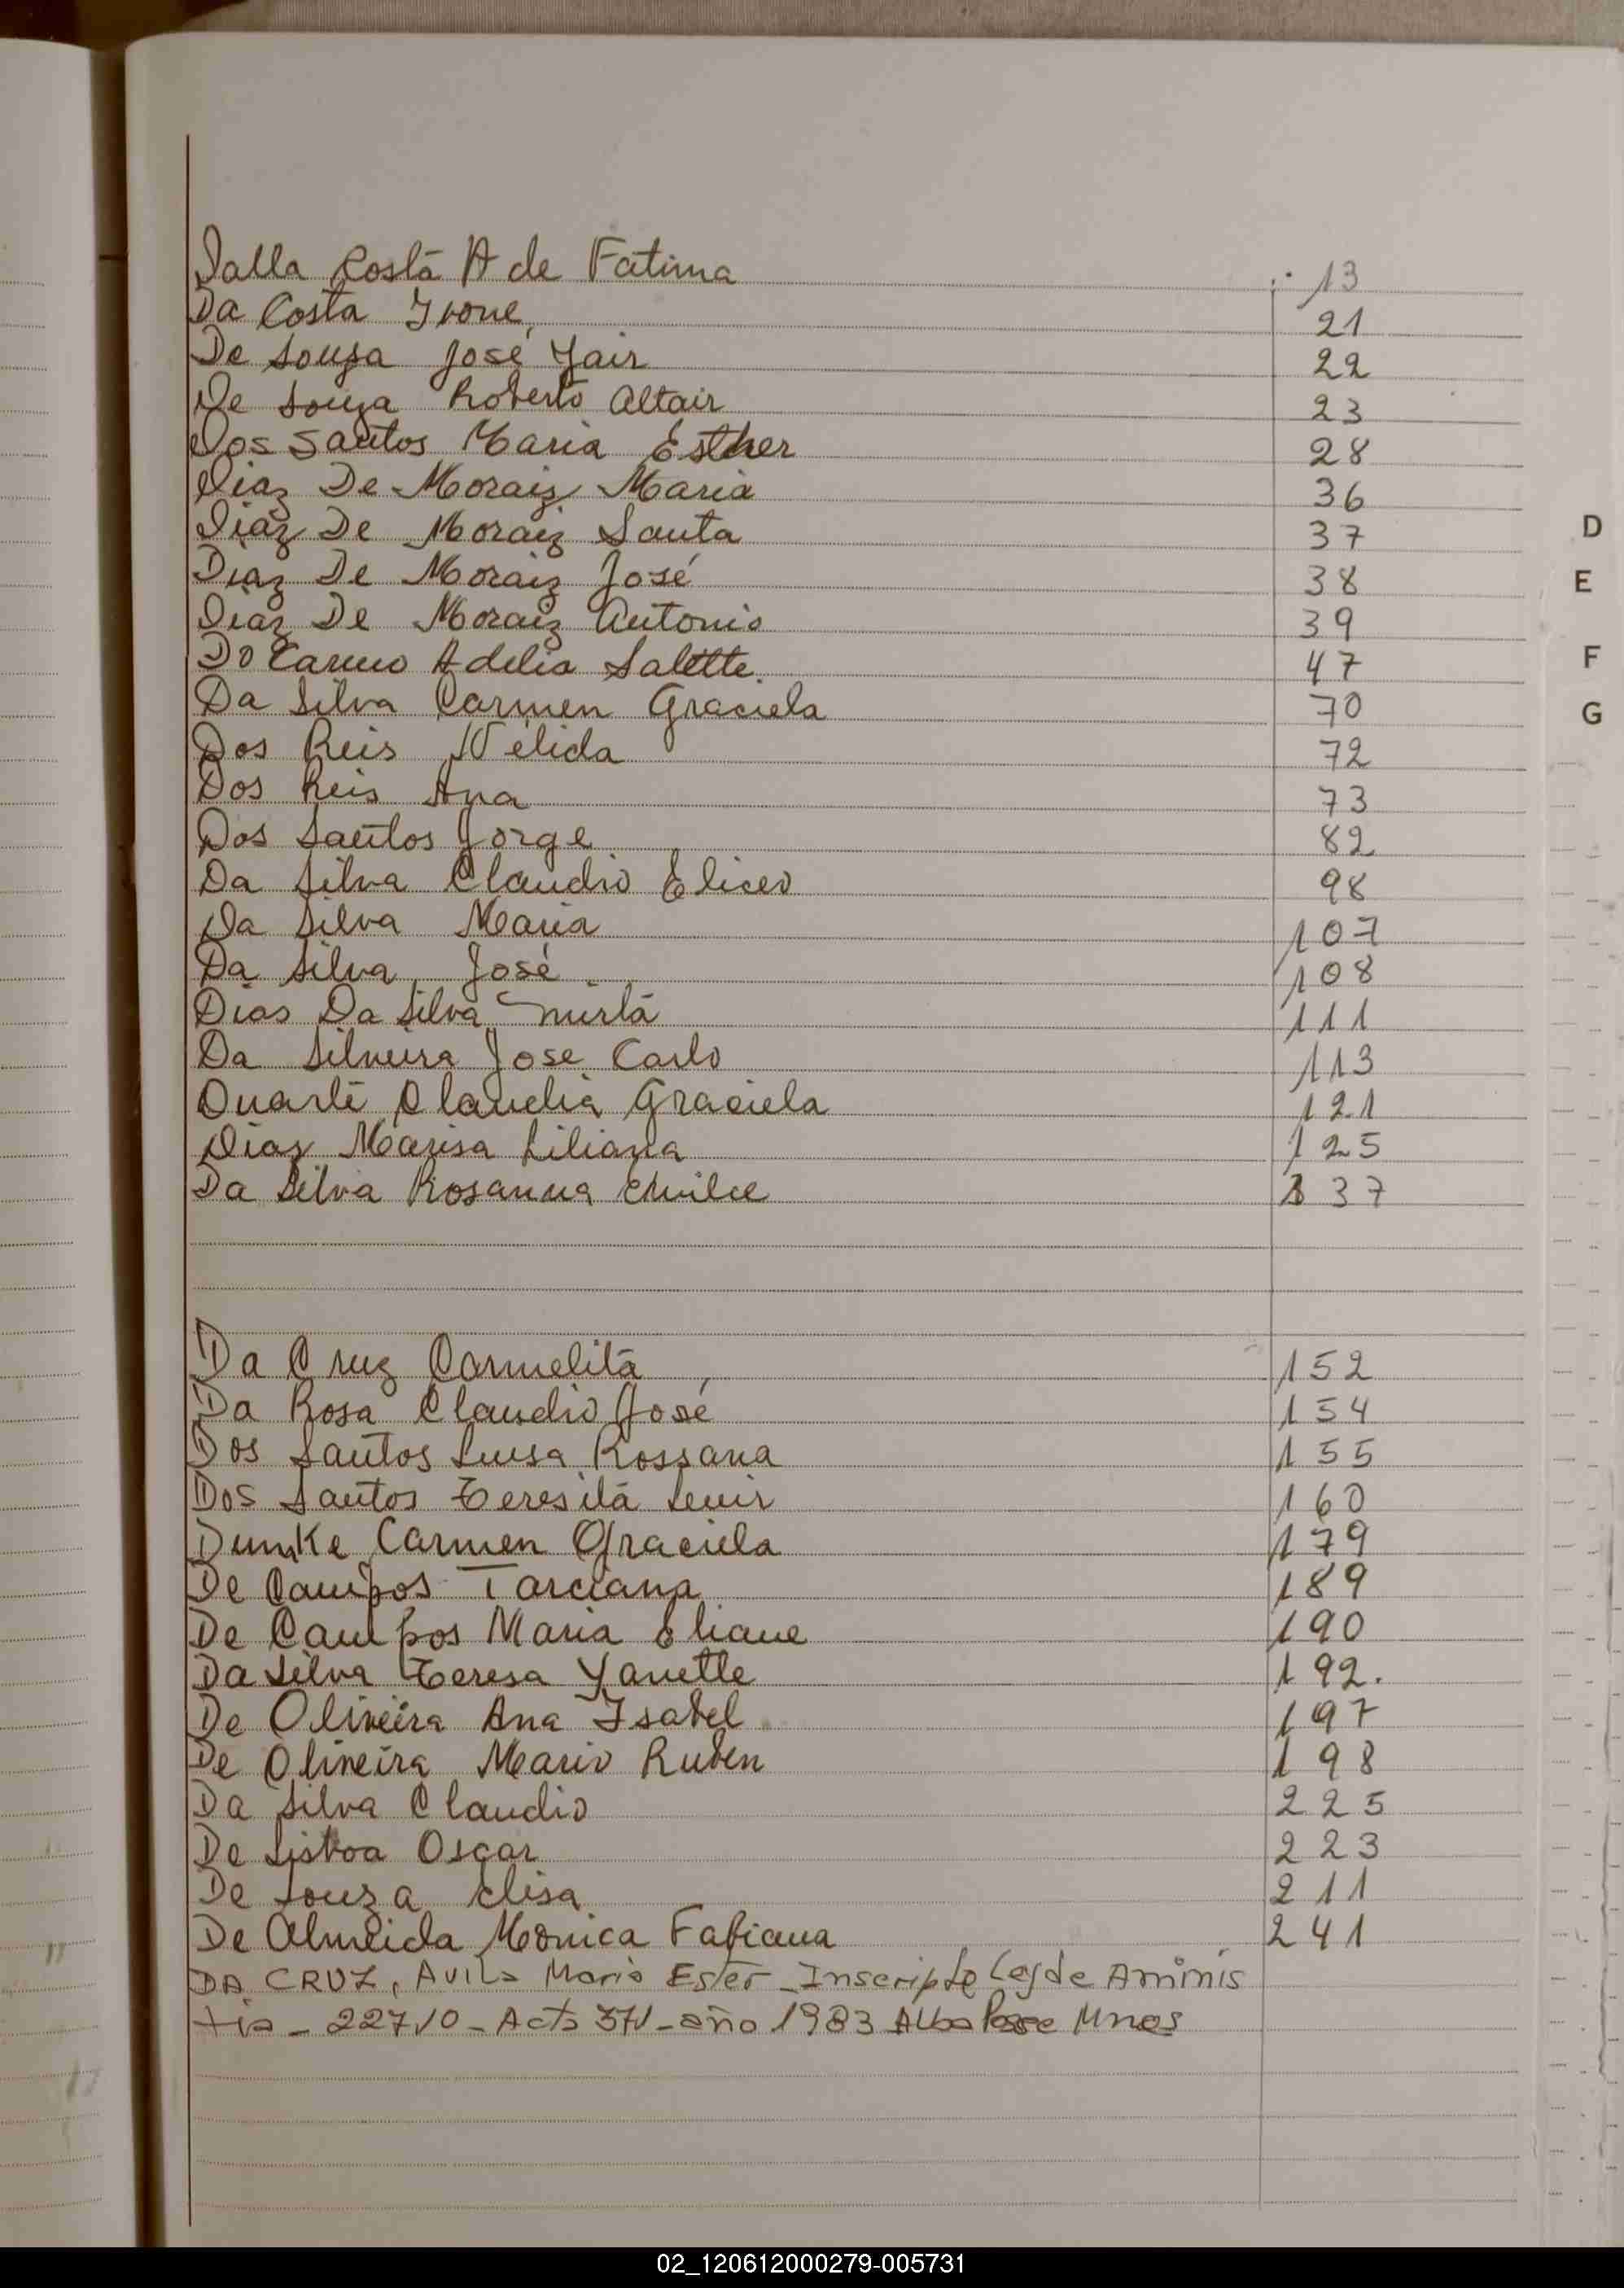 Dalla Costa A de Fatima 13
Da Costa Ivone 21
De Souza José Yair 22
De Souza Roberto Altair 23
Dos Santos Maria Esther 28
Diaz De Moraiz Maria 36
Diaz De Moraiz Santa 37
Diaz De Moraiz José 38
Diaz De Moraiz Antonio 39
Do Carmo Adelia Salette 47
Da Silva Carmen Graciela 70
Dos Reis Nélida 72
Dos Reis Ana 73
Dos Santos Jorge 82
Da Silva Claudio Eliseo 98
Da Silva Maria 107
Da Silva José 108
Dias Da Silva Mirta 111
Da Silveira Jose Carlo 113
Duarte Claudia Graciela 121
Diaz Marisa Liliana 125
Da Silva Rosanna 137
Da Cruz Carmelita 152
Da Rosa Claudio José 154
Dos Santos Luisa Rossana 155
Dos Santos Teresita 160
Dumke Carmen Graciela 179
De Campos Tarciana 189
De Campos Maria Eliane 190
Da Silva Teresa Yanette 192.
De Oliveira Ana Isabel 197
De Oliveira Mario Ruben 198
Da Silva Claudio 225
De Lisboa Oscar 223
De Souza Elisa 211
De Almeida Monica Fabiana 241
DA CRUZ, Avila Maria Ester - Inscripto Ley de Aminis
tia - 22710 - Acta 371 - año 1983 Alba Posse Mnes
D
E
F
G
02_120612000279-005731